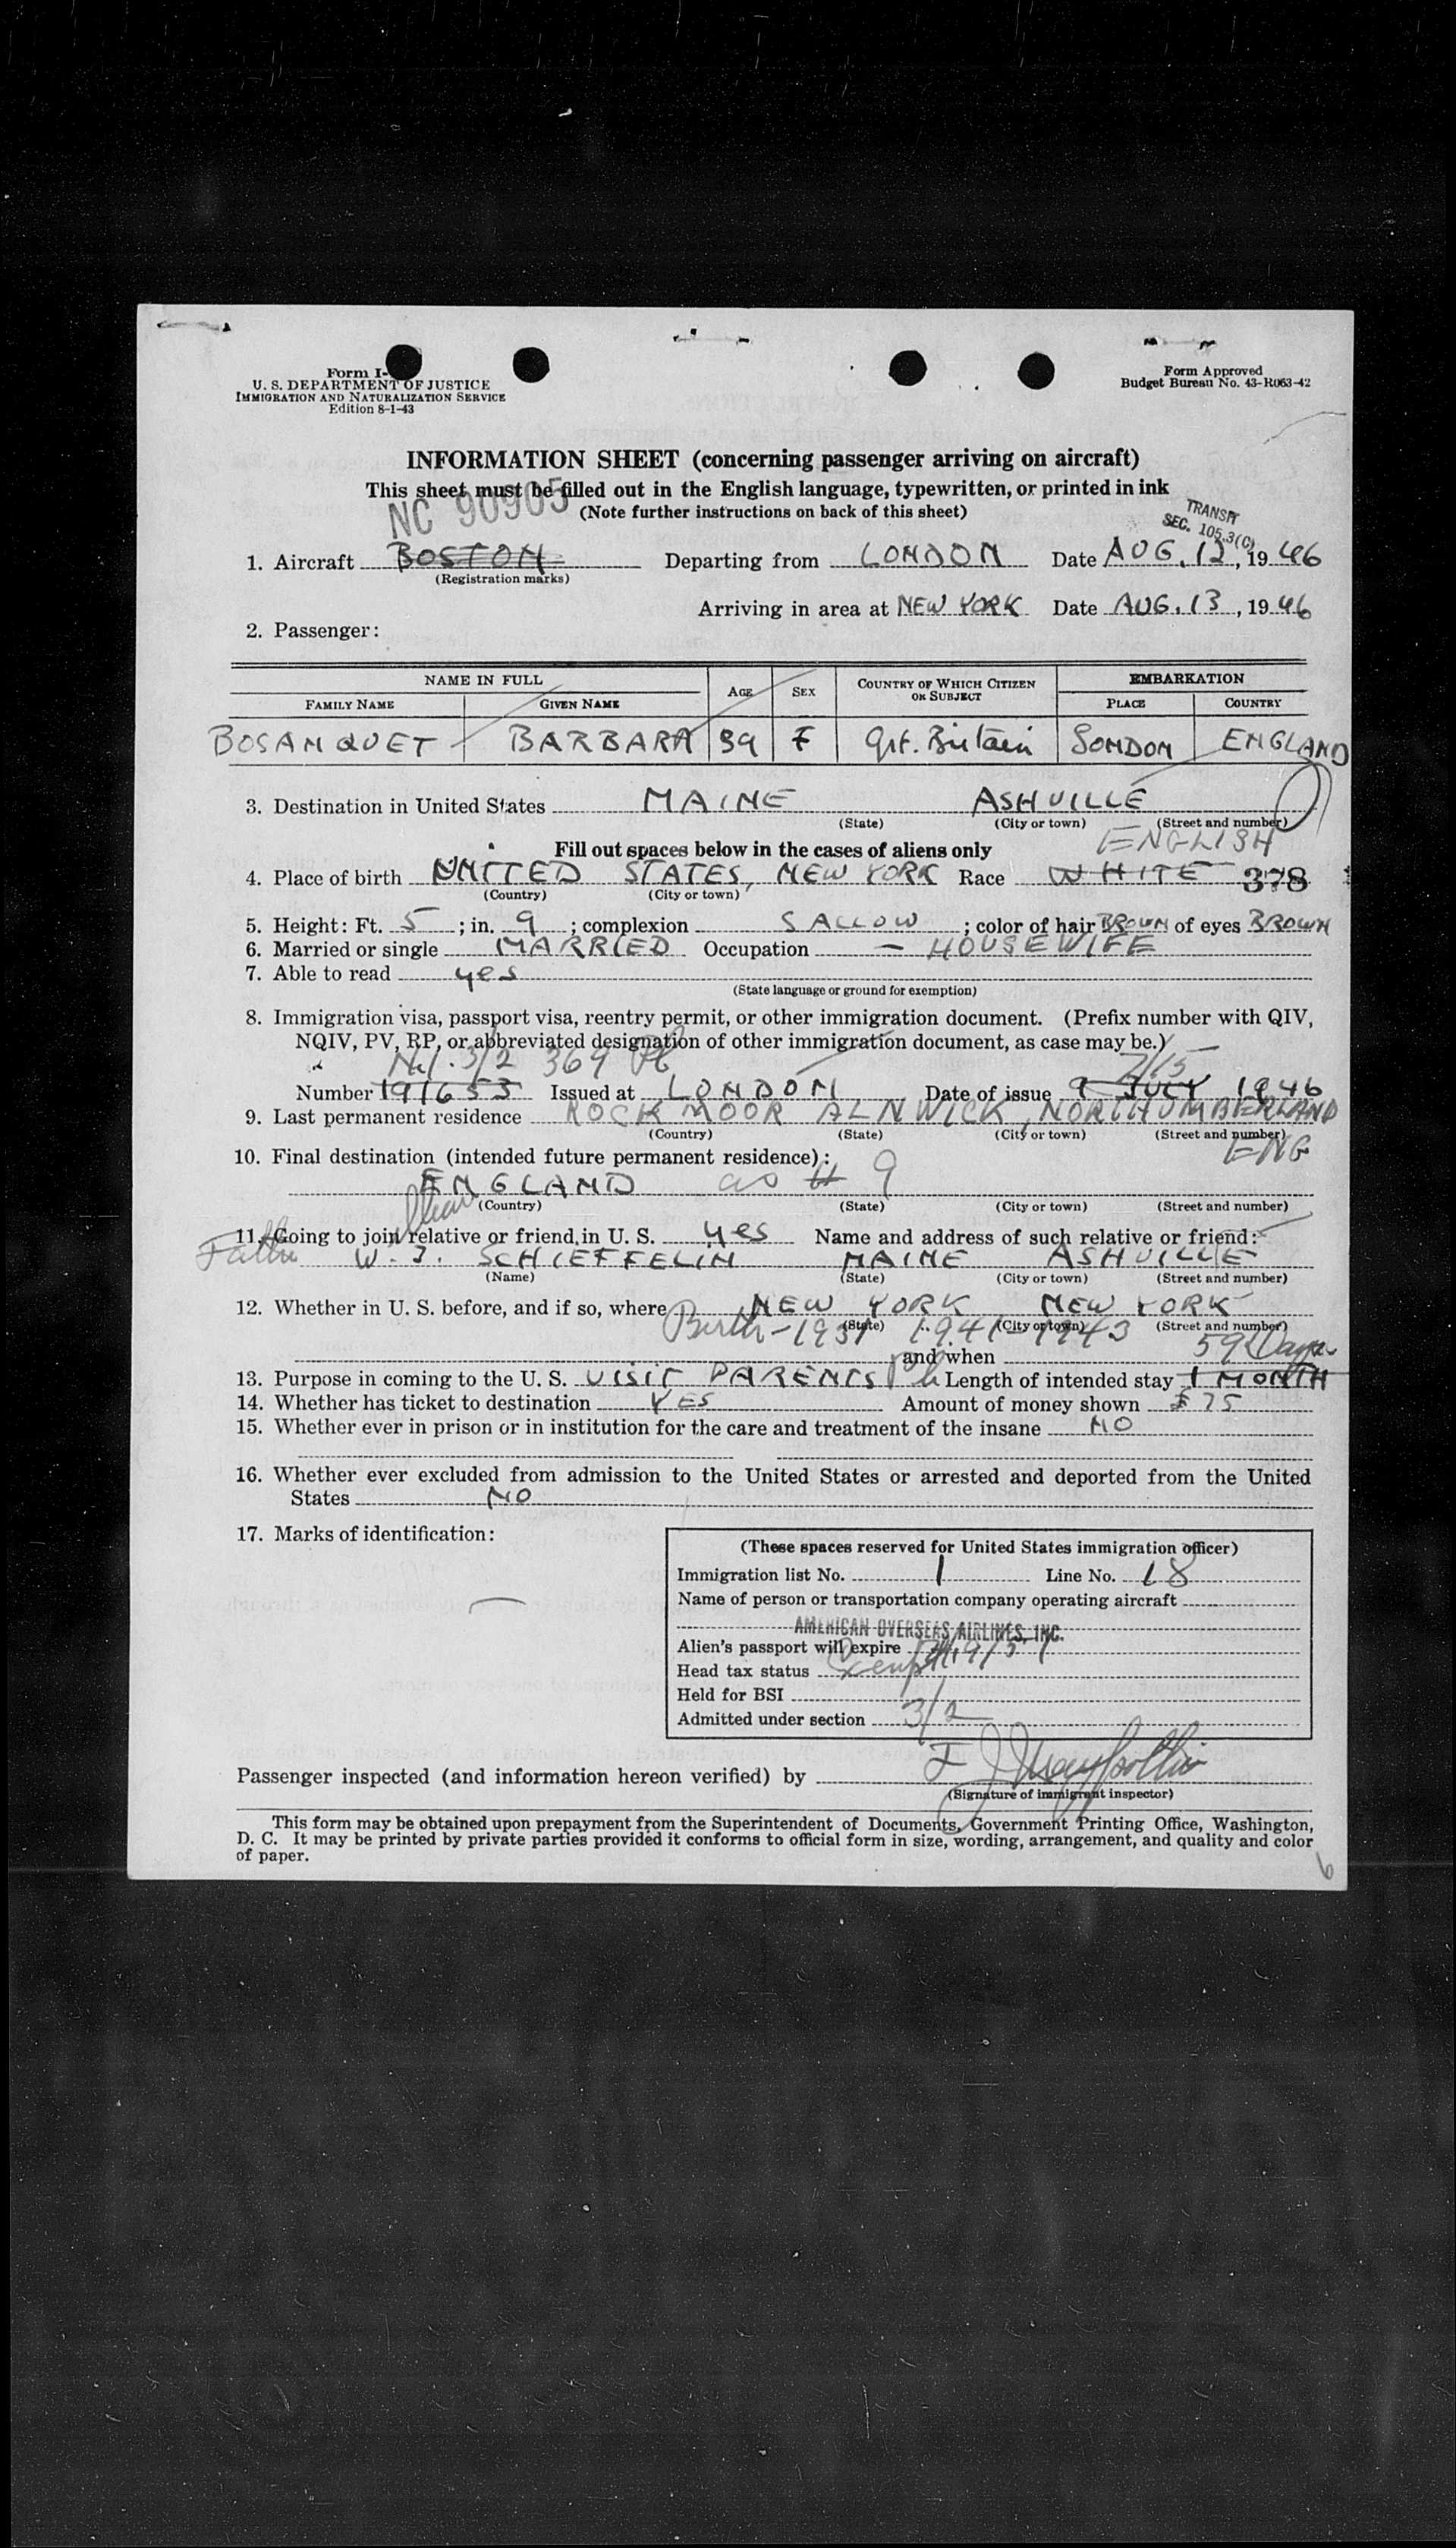 Form I-
U. S. DEPARTMENT OF JUSTICE
IMMIGRATION AND NATURALIZATION SERVICE
Edition 8-1-43
Form Approved
Budget Bureau No. 43-R063-42
INFORMATION SHEET (concerning passenger arriving on aircraft)
This sheet must be filled out in the English language, typewritten, or printed in ink
NC 90905 (Note further instructions on back of this sheet)
TRANSIT
SEC. 105.3(C)
1. Aircraft BOSTON Departing from LONDON Date AUG. 12, 1946
(Registration marks)
Arriving in area at NEW YORK Date AUG. 13, 1946
2. Passenger:
NAME IN FULL AGE SEX COUNTRY OF WHICH CITIZEN OR SUBJECT EMBARKATION
FAMILY NAME GIVEN NAME PLACE COUNTRY
BOSANQUET BARBARA 39 F Grt. Britain LONDON ENGLAND
3. Destination in United States MAINE ASHVILLE
(State) (City or town) (Street and number)
Fill out spaces below in the cases of aliens only ENGLISH
4. Place of birth UNITED STATES, NEW YORK Race WHITE 378
(Country) (City or town)
5. Height: Ft. 5; in. 9; complexion SALLOW; color of hair BROWN of eyes BROWN
6. Married or single MARRIED Occupation — HOUSEWIFE
7. Able to read yes
(State language or ground for exemption)
8. Immigration visa, passport visa, reentry permit, or other immigration document. (Prefix number with QIV,
NQIV, PV, RP, or abbreviated designation of other immigration document, as case may be.)
3/2 369 7/15
Number 191653 Issued at LONDON Date of issue 9 JULY 1946
9. Last permanent residence ROCK MOOR ALNWICK, NORTHUMBERLAND
(Country) (State) (City or town) (Street and number)
ENG
10. Final destination (intended future permanent residence):
ENGLAND as # 9
(Country) (State) (City or town) (Street and number)
11. Going to join relative or friend in U. S. yes Name and address of such relative or friend:
Father W. J. SCHIEFFELIN MAINE ASHVILLE
(Name) (State) (City or town) (Street and number)
12. Whether in U. S. before, and if so, where NEW YORK NEW YORK
(State) (City or town) (Street and number)
Birth-1931 1941-1943
and when 59 Days
13. Purpose in coming to the U. S. VISIT PARENTS Length of intended stay 1 MONTH
14. Whether has ticket to destination YES Amount of money shown £ 75
15. Whether ever in prison or in institution for the care and treatment of the insane NO
16. Whether ever excluded from admission to the United States or arrested and deported from the United
States NO
17. Marks of identification: —
(These spaces reserved for United States immigration officer)
Immigration list No. 1 Line No. 18
Name of person or transportation company operating aircraft
AMERICAN OVERSEAS AIRLINES, INC.
Alien's passport will expire
Head tax status Exempt
Held for BSI
Admitted under section 3/2
Passenger inspected (and information hereon verified) by
(Signature of immigrant inspector)
This form may be obtained upon prepayment from the Superintendent of Documents, Government Printing Office, Washington,
D. C. It may be printed by private parties provided it conforms to official form in size, wording, arrangement, and quality and color
of paper.
6